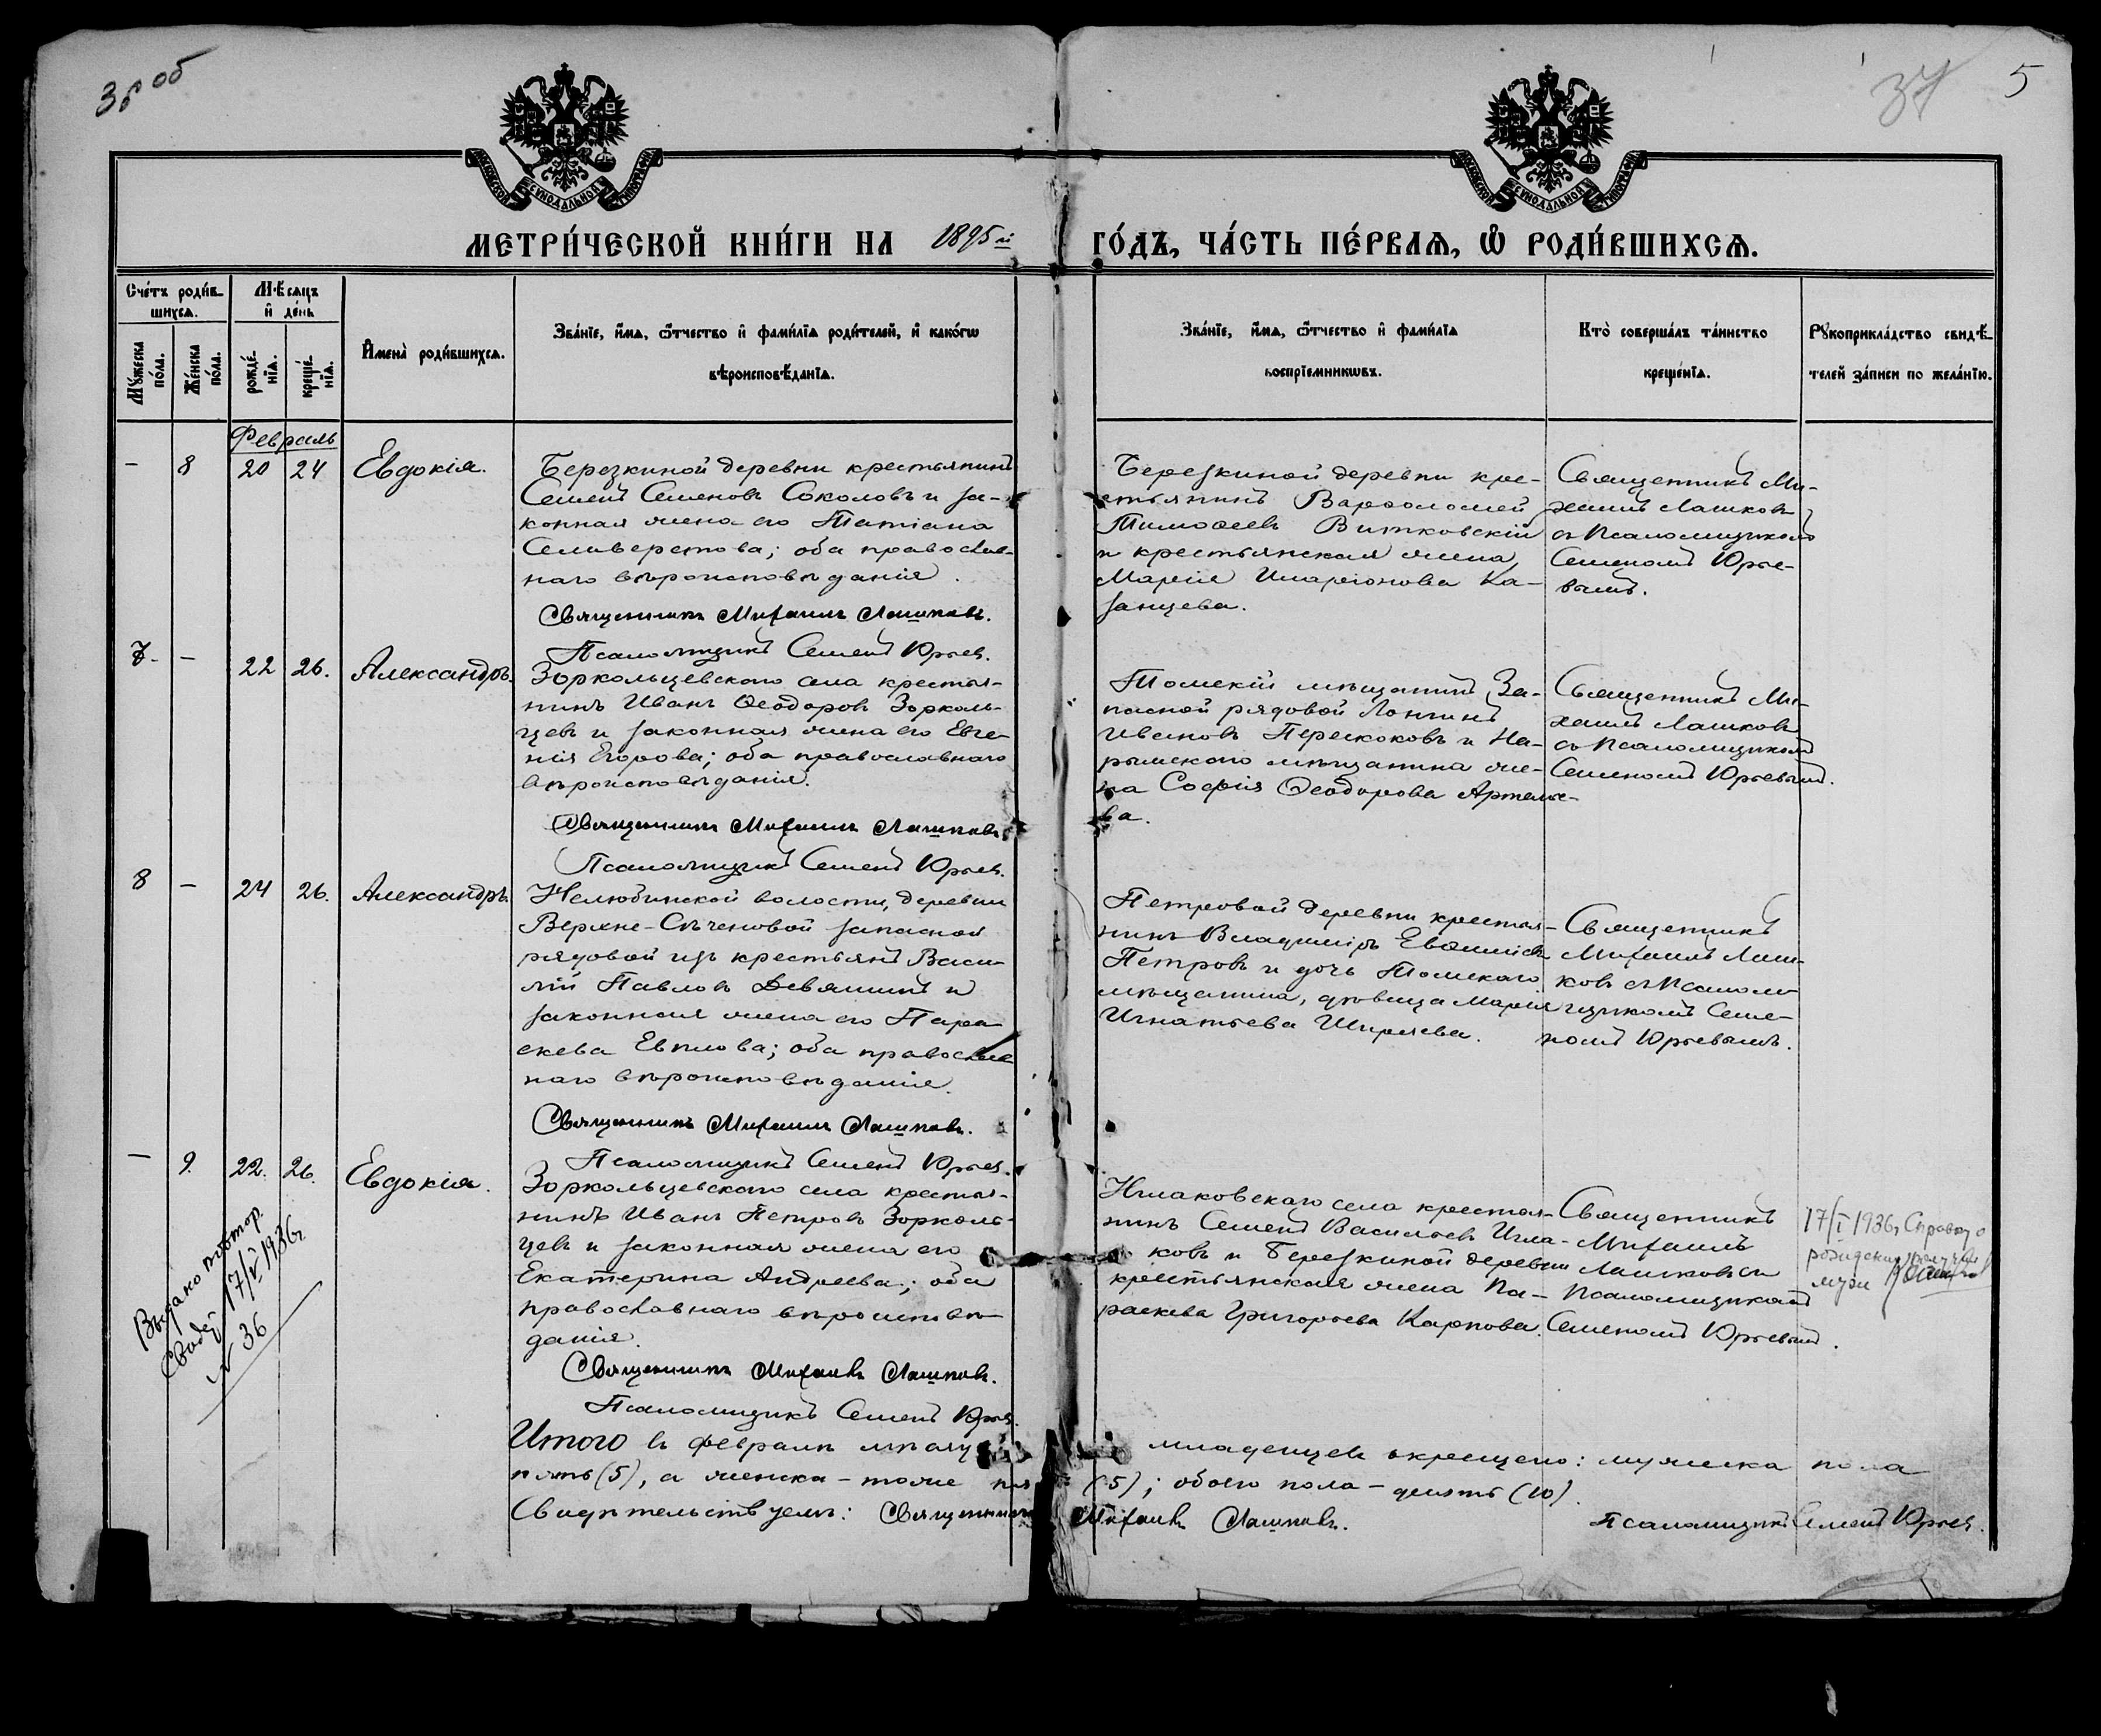 38 об
37
5
МОСКОВСКОЙ СѴНОДАЛЬНОЙ ТИПОГРАФІИ
МОСКОВСКОЙ СѴНОДАЛЬНОЙ ТИПОГРАФІИ
МЕТРИ́ЧЕСКОЙ КНИ́ГИ НА 1895й ГО́ДЪ, ЧА́СТЬ ПЕ́РВАѦ, Ѡ҆ РОДИ́ВШИХСѦ.
Сче́тъ роди́в-
шихсѧ.
Мѣ́сѧцъ
и҆ де́нь
Мꙋ́жеска
по́ла.
Же́нска
по́ла.
рожде́-
нїѧ.
креще́-
нїѧ.
И҆мена̀ роди́вшихсѧ.
Зва́нїе, и҆́мѧ, ѻ҆́тчество и҆ фами́лїѧ роди́телей, и҆ како́гѡ
вѣроисповѣ́данїѧ.
Зва́нїе, и҆́мѧ, ѻ҆́тчество и҆ фами́лїѧ
воспрїе́мникѡвъ.
Кто̀ соверша́лъ та́инство
креще́нїѧ.
Рꙋкоприкла́дство свидѣ́-
телей за́писи по жела́нїю.
Февраль
– 8 20 24 Евдокія.
Березкиной деревни крестьянинъ
Семенъ Семеновъ Соколовъ и за-
конная жена его Татіана
Селиверстова; оба православ-
наго вѣроисповѣданія.
Священникъ Михаилъ Лашковъ.
Псаломщикъ Семенъ Юрьев.
Березкиной деревни кре-
стьянинъ Варфоломей
Тимофеевъ Витковскій
и крестьянская жена
Марія Иларіонова Ка-
занцева.
Священникъ Ми-
хаилъ Лашковъ
съ Псаломщикомъ
Семеномъ Юрье-
вымъ.
7. – 22 26. Александръ.
Зоркольцевского села крестья-
нинъ Иванъ Ѳеодоровъ Зорколь-
цевъ и законная жена его Евге-
нія Егорова; оба православнаго
вѣроисповѣданія.
Священникъ Михаилъ Лашковъ.
Псаломщикъ Семенъ Юрьев.
Томскій мѣщанинъ, За-
пасной рядовой Лонгинъ
Ивановъ Перескоковъ и На-
рымского мѣщанина же-
на Софія Ѳеодорова Артемье-
ва.
Священникъ Ми-
хаилъ Лашковъ
съ Псаломщикомъ
Семеномъ Юрьевымъ.
8 – 24 26. Александръ
Нелюбинской волости, деревни
Верхне-Сѣченовой запасной
рядовой изъ крестьянъ Васи-
лій Павловъ Девяшинъ и
законная жена его Пара-
скева Евплова; оба православ-
наго вѣроисповѣданія.
Священникъ Михаилъ Лашковъ.
Псаломщикъ Семенъ Юрьев.
Петровой деревни крестья-
нинъ Владиміръ Евфиміевъ
Петровъ и дочь Томскаго
мѣщанина, дѣвица Марія
Игнатьева Ширяева.
Священникъ
Михаилъ Лаш-
ковъ съ Псалом-
щикомъ Семе-
номъ Юрьевымъ.
– 9. 22. 26. Евдокія.
Зоркольцевского села крестья-
нинъ Иванъ Петровъ Зорколь-
цевъ и законная жена его
Екатерина Андреева; оба
православнаго вѣроисповѣ-
данія.
Священникъ Михаилъ Лашковъ.
Псаломщикъ Семенъ Юрьев.
Иглаковскаго села крестья-
нинъ Семенъ Васильевъ Игла-
ковъ и Березкиной деревни
крестьянская жена Па-
раскева Григорьева Карпова.
Священникъ
Михаилъ
Лашковъ съ
Псаломщикомъ
Семеномъ Юрьевымъ.
17/I 1936г Справку о
рождении получил
муж
Выдано повтор.
свид. 17/V 1936г
№ 36
Итого въ Февралѣ мѣсяцѣ младенцевъ окрещено: мужска пола
пять (5), а женска – тоже пять (5); обоего пола – десять (10).
Свидѣтельствуемъ: Священникъ Михаилъ Лашковъ. Псаломщикъ Семенъ Юрьев.